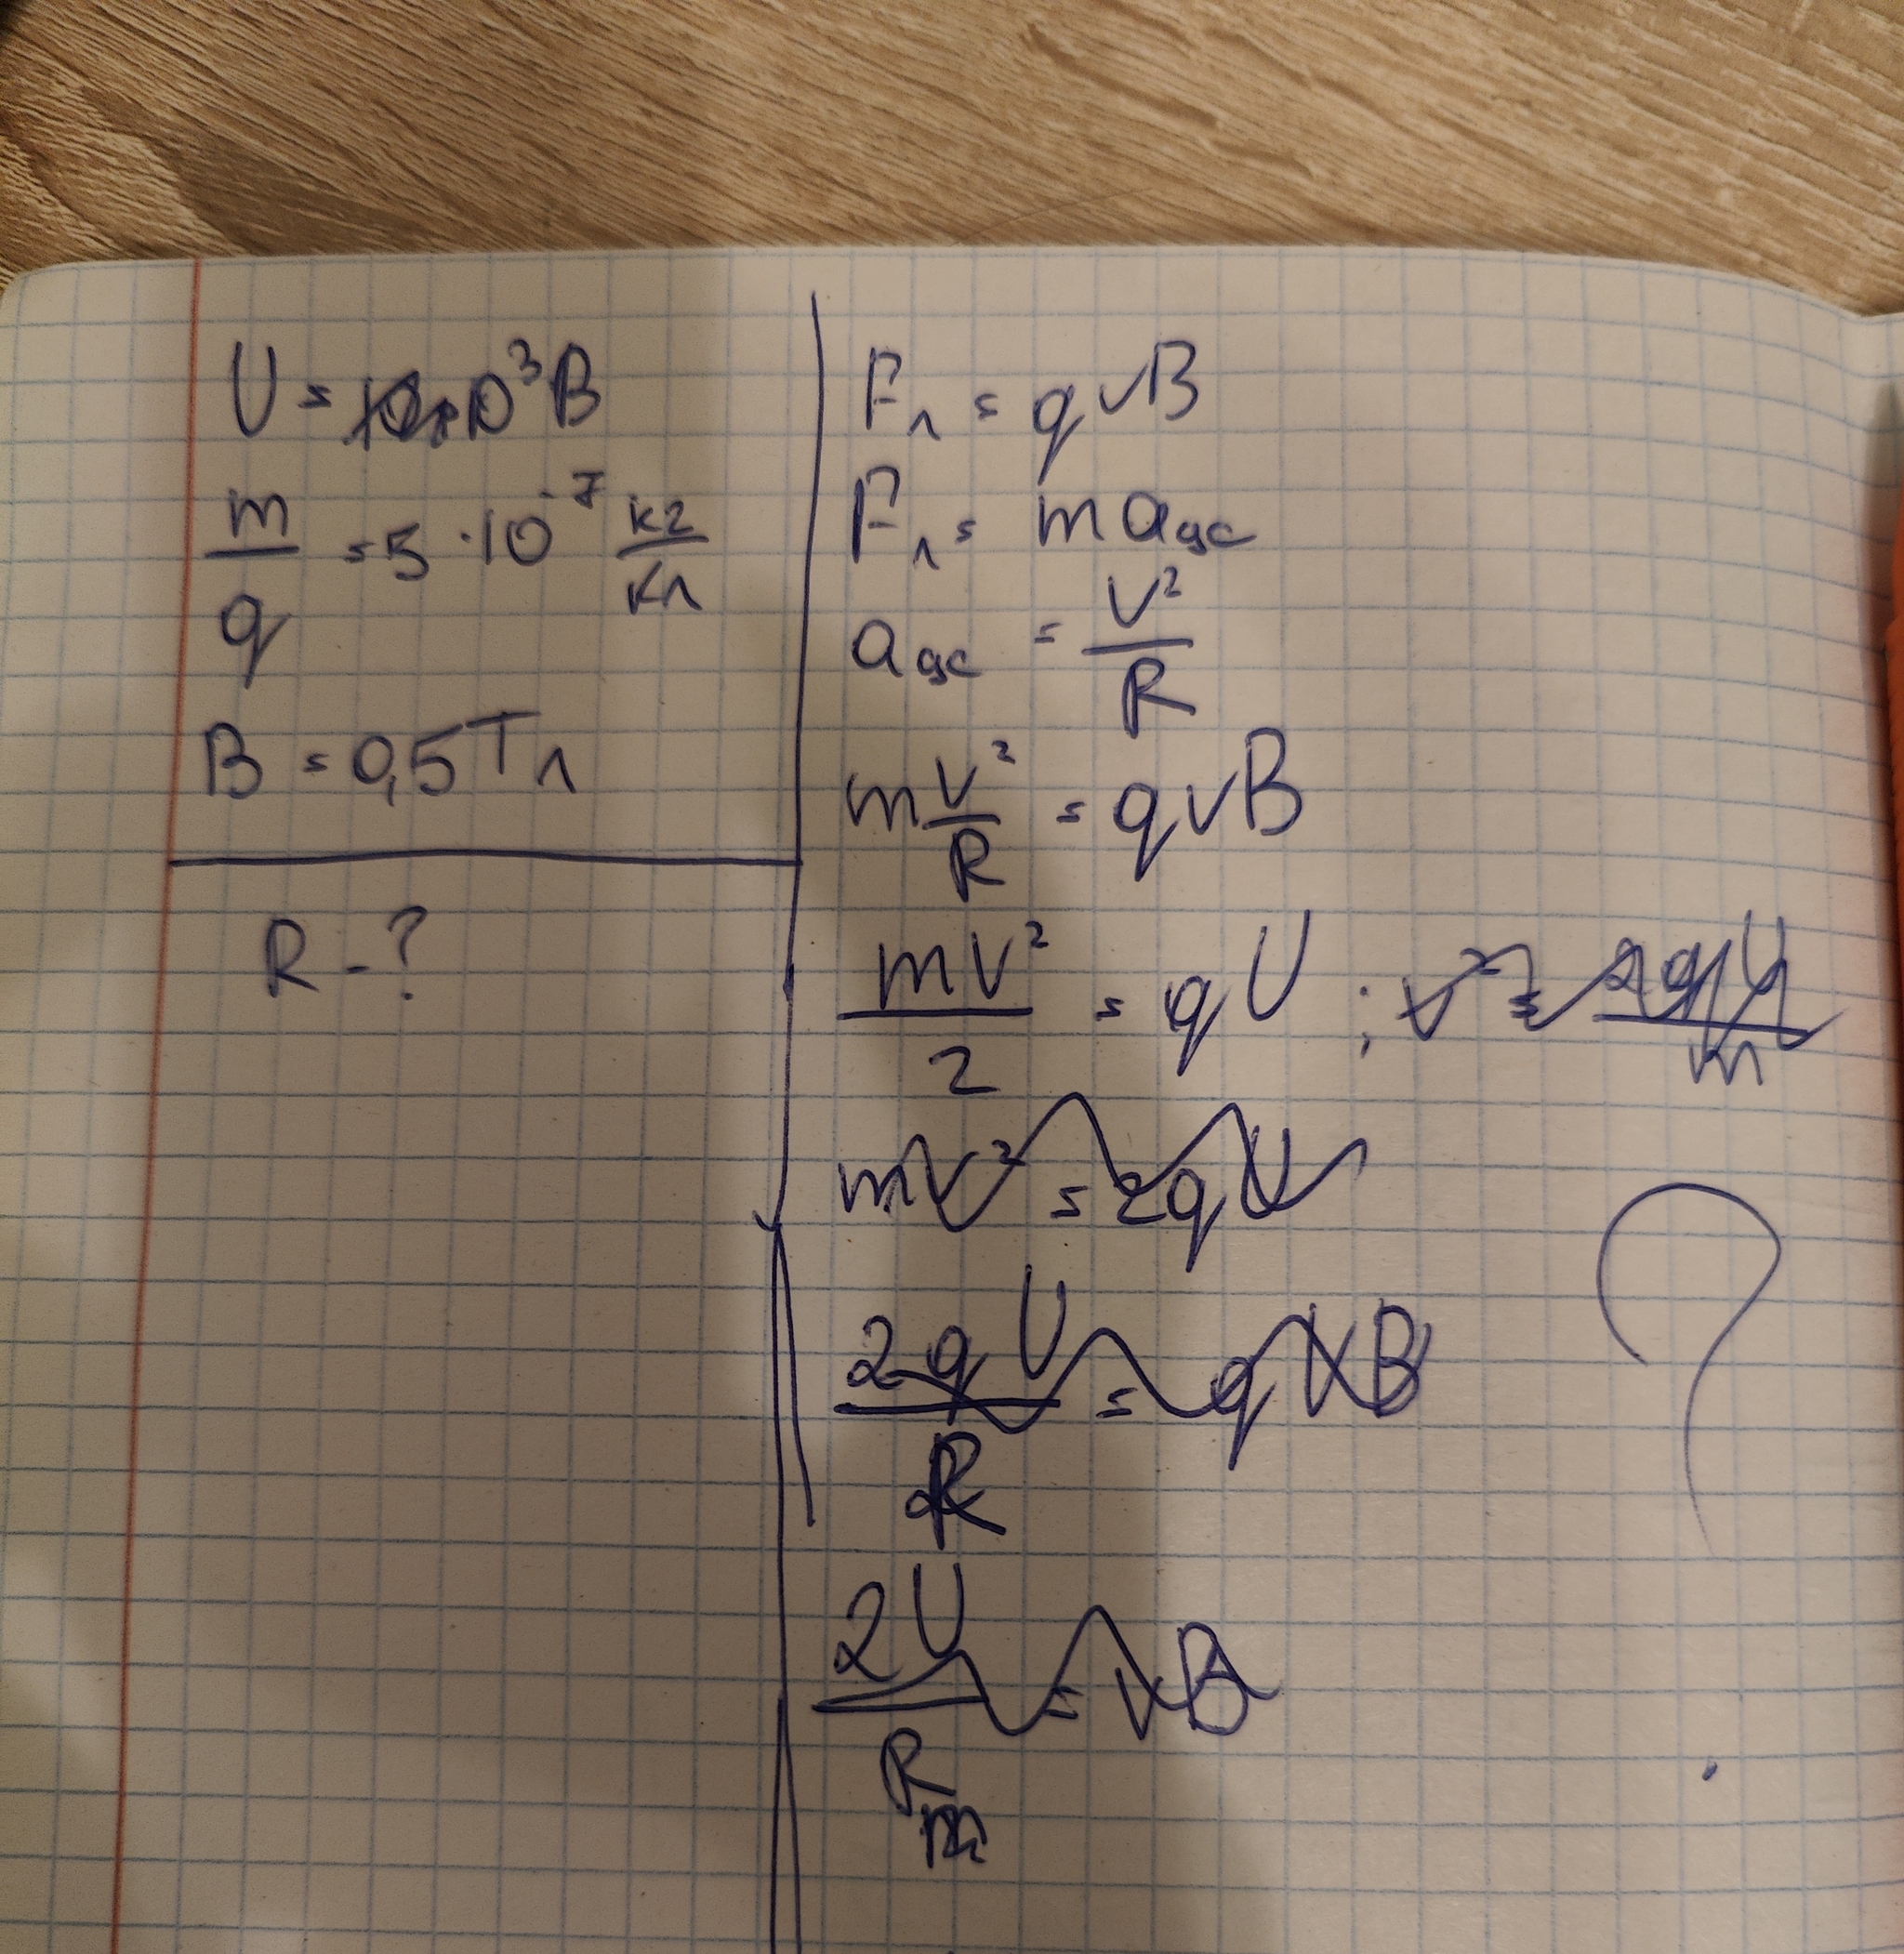 U = 10³ В
m/q = 5 · 10⁻⁷ кг/Кл
B = 0,5 Тл
R - ?
Fл = qvB
Fл = m aцс
aцс = v²/R
m v²/R = qvB
mv²/2 = qU ; v² = 2qU/m
mv² = 2qU
2qU/R = qvB
2U/R = vB
m
?